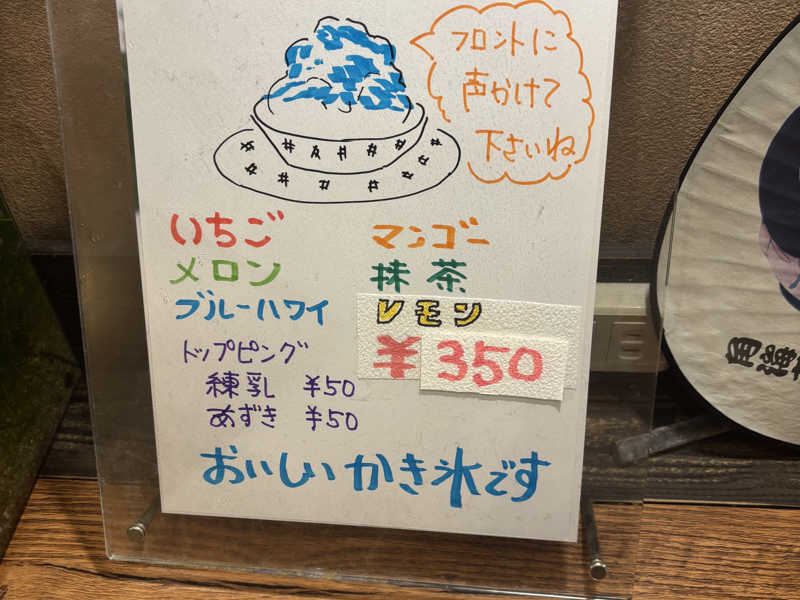 フロントに
声かけて
下さいね
いちご
マンゴー
メロン
抹茶
ブルーハワイ
レモン
¥350
トップピング
練乳 ¥50
あずき ¥50
おいしいかき氷です